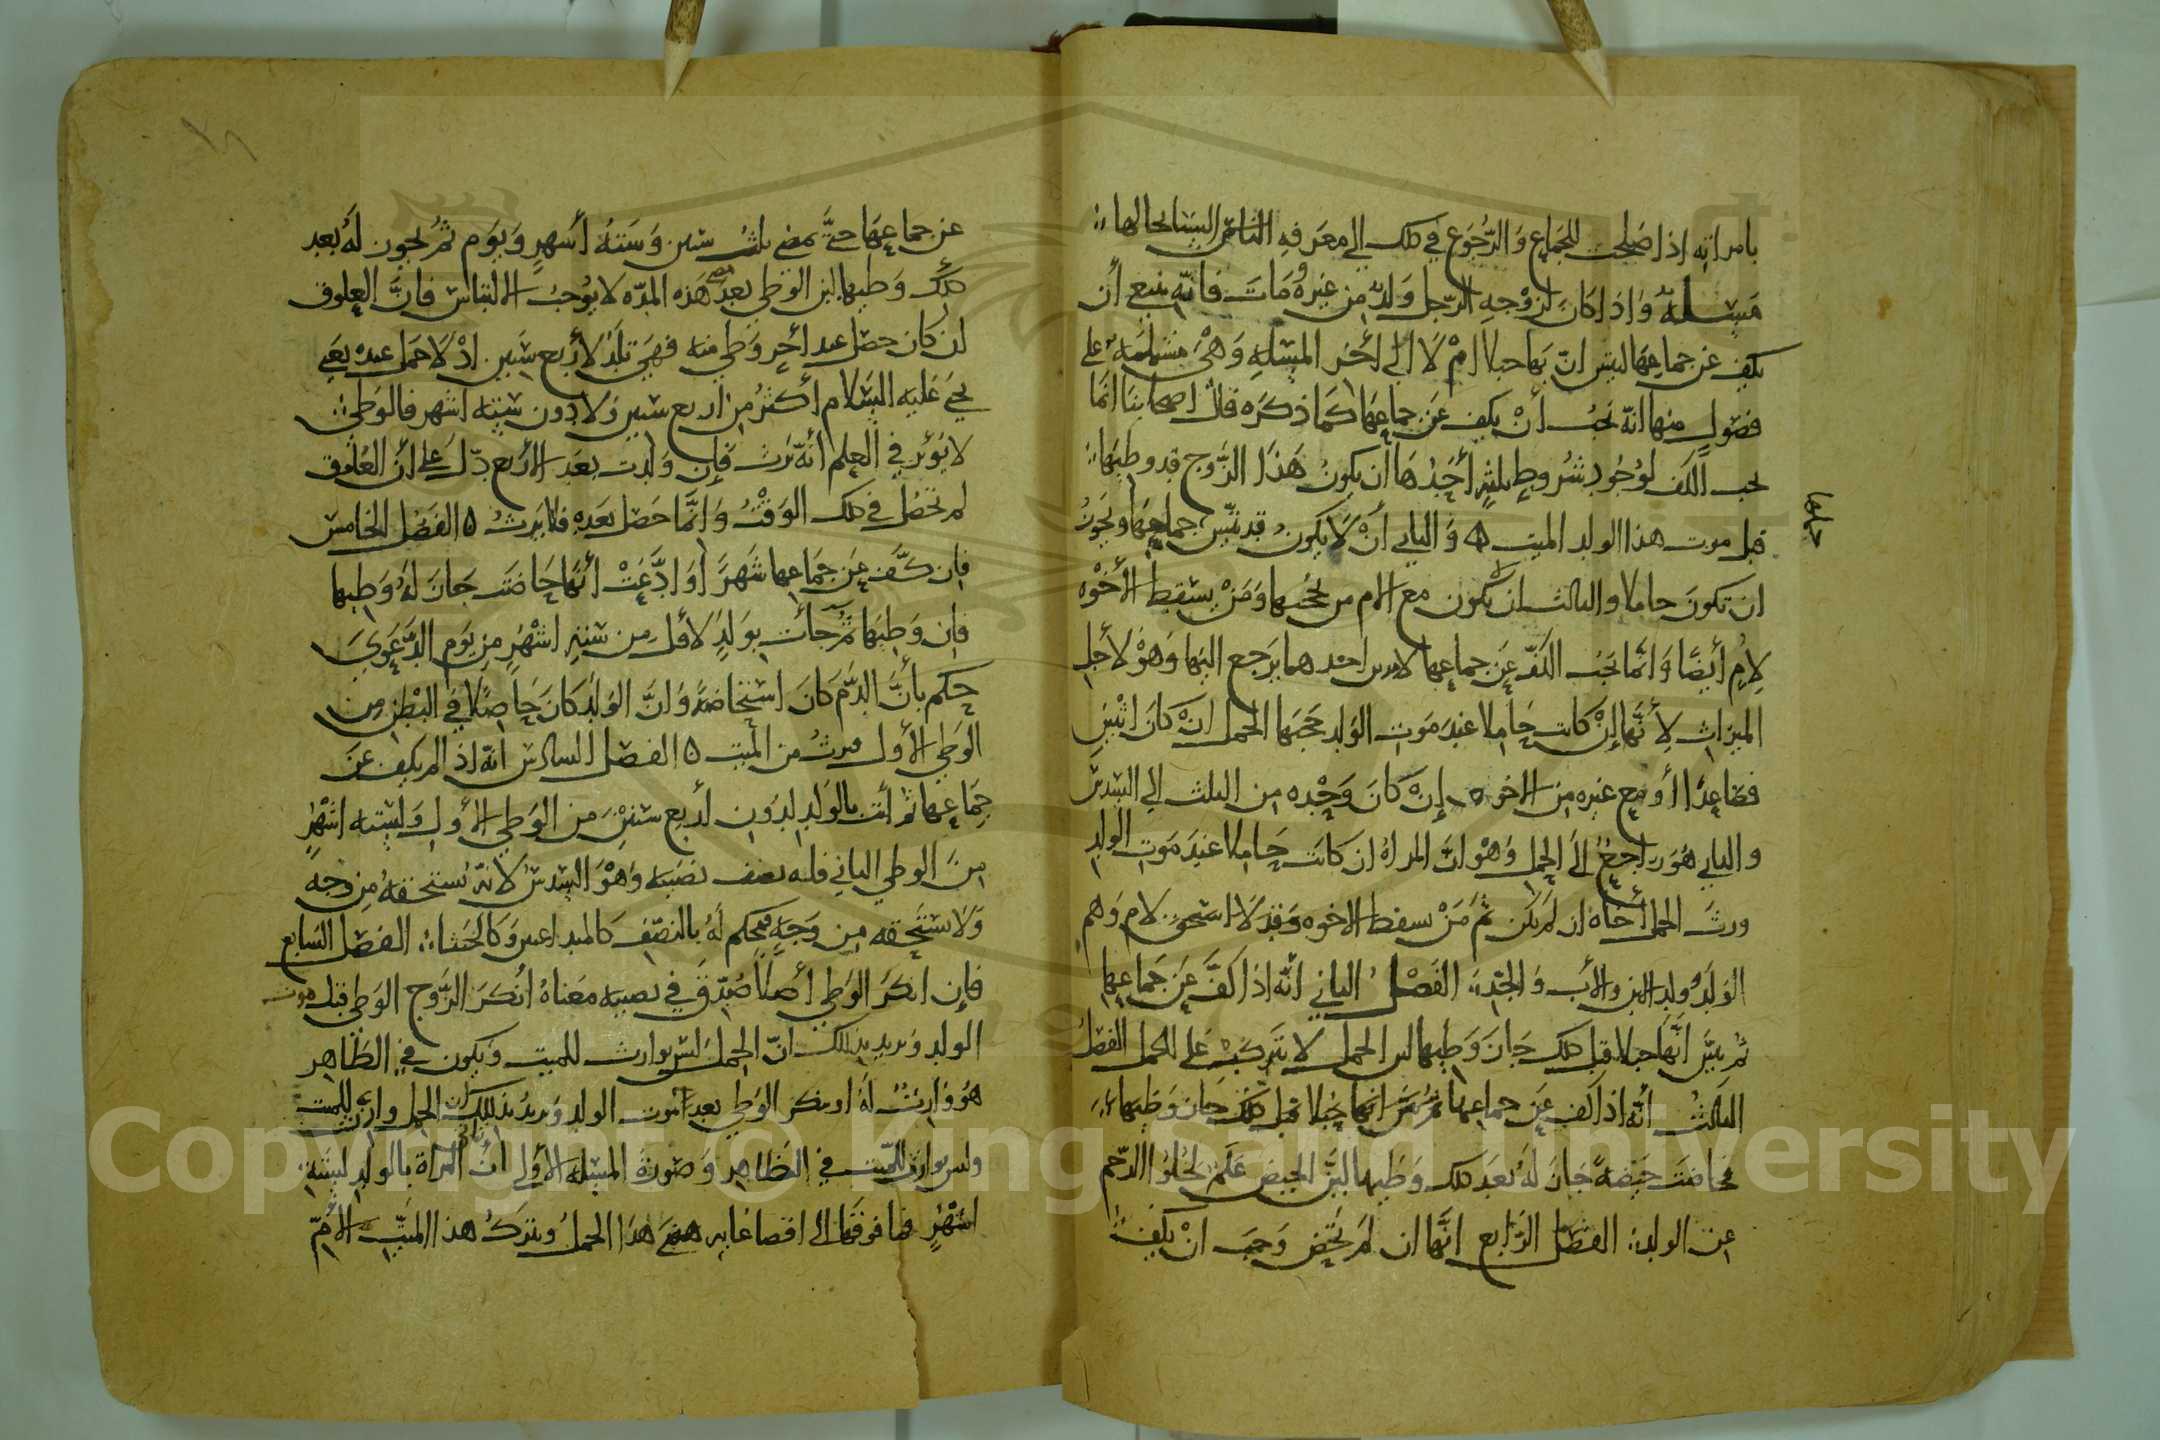 بامراته اذا صلحت للجماع والرجوع في ذلك الي معرفه النساء بحالها
مسئله واذا كان لزوجه الرجل ولد من غيره ومات فانه ينبغي أن
يكف عن جماعها ليتبين ان بها حبلا ام لا الي أخر المسئله وهي مشتمله علي
فصول منها انه يجب أن يكف عن جماعها كما ذكره قال اصحابنا انما
يجب الكف لوجود شروط ثلثه أحدها أن يكون هذا الزوج قد وطيها
قبل موت هذا الولد الميت ه والثاني أن لا يكون قد تبين حملها ويجوز
حملها
ان تكون حاملا والثالث ان لا يكون مع الام من يحجبها ومن يسقط الأخوه
لام أيضا وانما يجب الكف عن جماعها لامرين احدهما يرجع اليها وهو لأجل
الميراث لأنها إن كانت حاملا عند موت الولد حجبها الحمل ان كان اثنين
فصاعدا أو مع غيره من الاخوه إن كان وحده من الثلث الي السدس
والثاني هو راجع الى الحمل وهو ان المراة ان كانت حاملا عند موت الولد
ورث الحمل أخاه ان لم يكن ثم من يسقط الاخوه وقد لا استحق لام وهم
الولد وولد الابن والأب والجد: الفصل الثاني انه اذا كف عن جماعها
ثم تبين انها حبلا قبل ذلك جاز وطيها لان الحمل لا يتركب على الحمل الفصل
الثالث أنه اذا كف عن جماعها ثم تبين انها حبلا قبل ذلك جاز وطيها
فحاضت حيضة جاز له بعد ذلك وطيها لان الحيض علم لخلو الرحم
عن الولد: الفصل الرابع انها ان لم تحض وجب ان يكف
عن جماعها حتى يمضي ثلث سنين وسته أشهر ويوم ثم يجوز له بعد
ذلك وطيها لان الوطي بعد مضي هذه المده لا يوجب الالتباس فان العلوق
لن كان حصل عند أخر وطي منه فهي تلد لأربع سنين اذ لا حمل عنده يعني
يحي عليه السلام أكثر من اربع سنين ولا دون سته اشهر فالوطي
لا يؤثر في العلم أنه يرث فإن ولدت بعد الأربع دل علي أن العلوق
لم تحصل في ذلك الوقت وانما حصل بعده فلا يرث ه الفصل الخامس
فان كف عن جماعها شهرا أو ادعت أنها حاضت جاز له وطيها
فان وطيها ثم جأت بولد لأقل من سته اشهر من يوم الدعوى
حكم بأن الدم كان استحاضة وان الولد كان حاصلا في البطن من
الوطي الأول فيرث من الميت ه الفصل السادس انه اذا لم يكف عن
جماعها ثم أتت بالولد لدون أربع سنين من الوطي الأول ولسته اشهر
من الوطي الثاني فله نصف نصيبه وهو السدس لانه يستحقه من وجه
ولا يستحقه من وجه فحكم له بالنصف كالمتداعيين وكالخنثا: الفصل السابع
فإن انكر الوطي أصلا صدق في نصيبه معناه أنكر الزوج الوطي قبل موت
الولد ويريد بذلك ان الحمل ليس بوارث للميت ويكون في الظاهر
هو وارث له او ينكر الوطي بعد موت الولد ويريد بذلك ان الحمل وارث للميت
وليس بوارث للميت في الظاهر وصورة المسئله الأولى ان تاتي المراة بالولد لسته
اشهر فما فوقها الى اقصا غايه هذا الحمل ويترك هذا الميت الأم